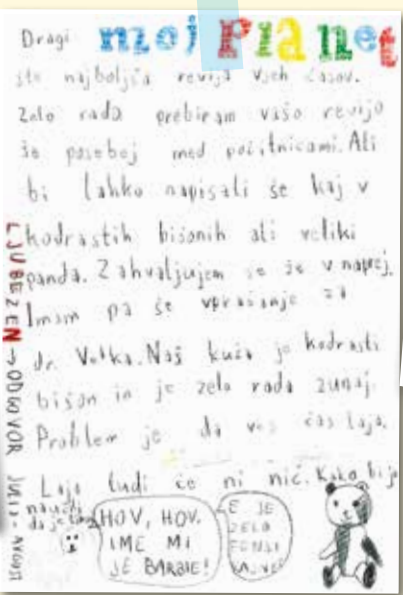 Dragi moj Planet
ste najboljša revija vseh časov.
Zelo rada prebiram vašo revijo
še posebej med počitnicami. Ali
bi lahko napisali še kaj v
kodrastih bišonih ali veliki
panda. Zahvaljujem se že v naprej.
Imam pa še vprašanje za
dr. Volka. Naš kuža je kodrasti
bišon in je zelo rada zunaj.
Problem je da ves čas laja.
Laja tudi če ni nič. Kako bi jo
HOV, HOV.
IME MI
JE BARBIE!
E JE
ZELO
LJUBEZEN → ODGOVOR JULIJ - AVGUST